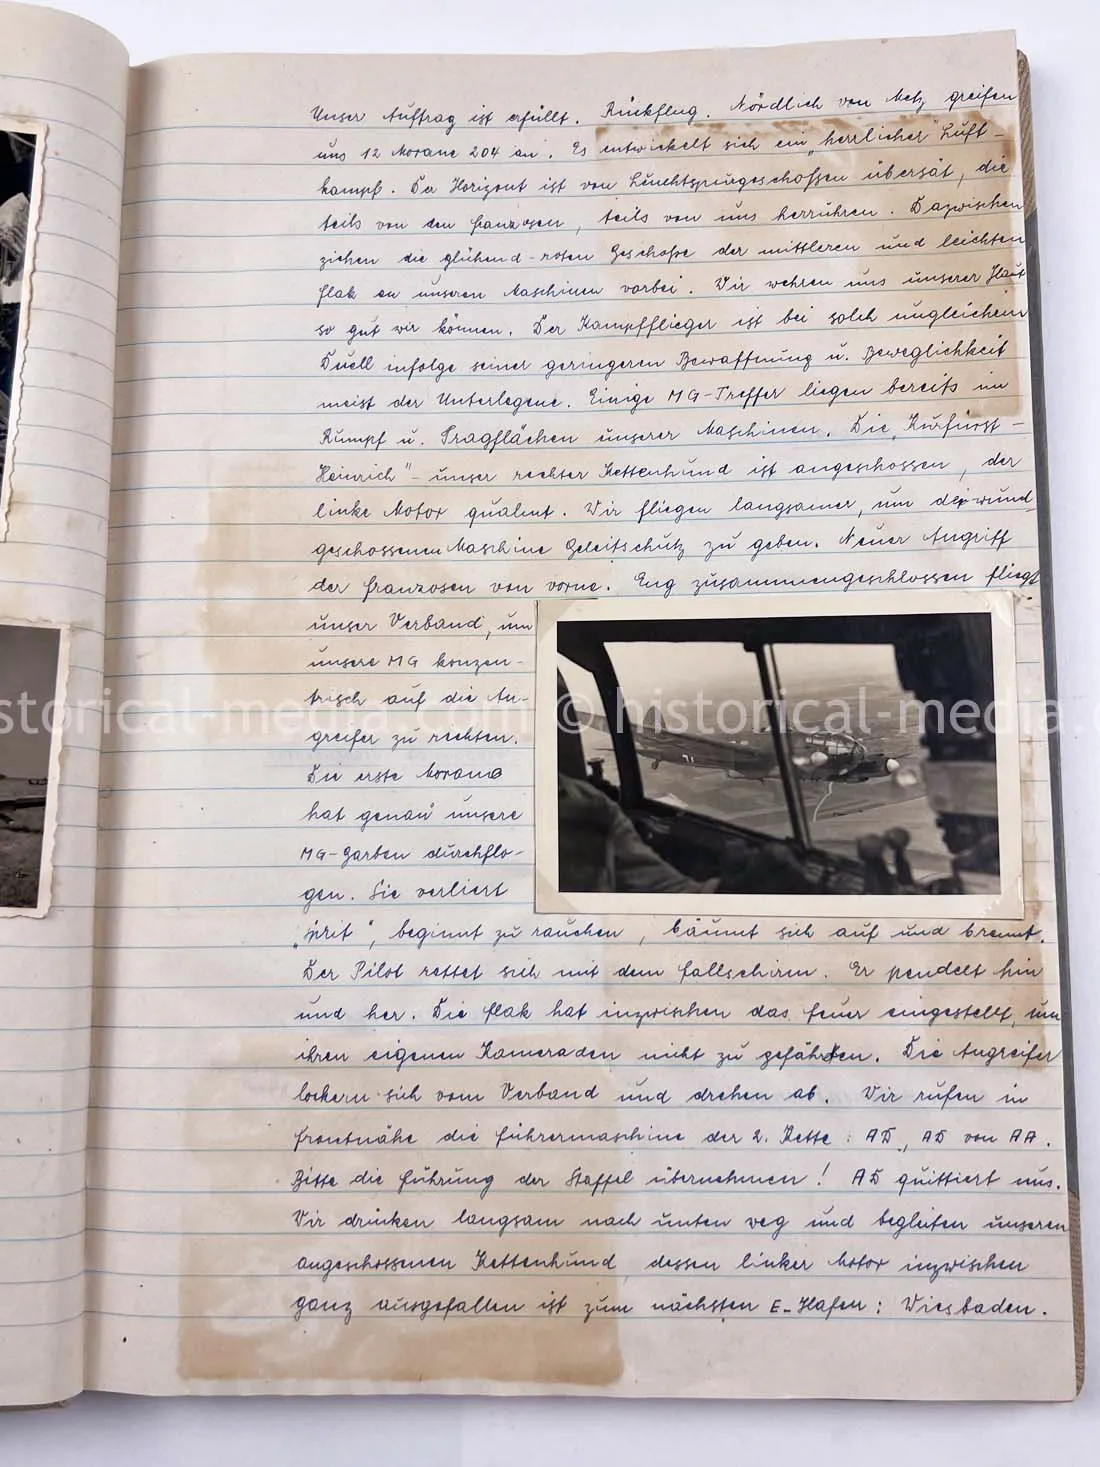 Unser Auftrag ist erfüllt. Rückflug. Nördlich von Metz greifen
uns 12 Morane 204 an. Es entwickelt sich ein „herrlicher" Luft-
kampf. Der Horizont ist von Leuchtspurgeschoßen übersät, die
teils von den Franzosen, teils von uns herrühren. Dazwischen
ziehen die glühend-roten Geschoße der mittleren und leichten
Flak an unseren Maschinen vorbei. Wir wehren uns unserer Haut
so gut wir können. Der Kampfflieger ist bei solch ungleichem
Duell infolge seiner geringeren Bewaffnung u. Beweglichkeit
meist der Unterlegene. Einige MG-Treffer liegen bereits im
Rumpf u. Tragflächen unserer Maschinen. Die „Kurfürst-
Heinrich" - unser rechter Kettenhund ist angeschossen, der
linke Motor qualmt. Wir fliegen langsamer, um der wund
geschossenen Maschine Geleitschutz zu geben. Neuer Angriff
der Franzosen von vorne. Eng zusammengeschlossen fliegt
unser Verband, um
unsere MG konzen-
trisch auf die An-
greifer zu richten.
Die erste Morane
hat genau unsere
MG-Garben durchflo-
gen. Sie verliert
„Sprit", beginnt zu rauchen, bäumt sich auf und brennt.
Der Pilot rettet sich mit dem Fallschirm. Er pendelt hin
und her. Die Flak hat inzwischen das Feuer eingestellt, um
ihren eigenen Kameraden nicht zu gefährden. Die Angreifer
lockern sich vom Verband und drehen ab. Wir rufen in
Frontnähe die Führermaschine der 2. Kette: AD, AD von AA.
Bitte die Führung der Staffel übernehmen! AD quittiert uns.
Wir drücken langsam nach unten weg und begleiten unseren
angeschossenen Kettenhund, dessen linker Motor inzwischen
ganz ausgefallen ist zum nächsten E-Hafen: Wiesbaden.
storical-media.com © historical-media.c